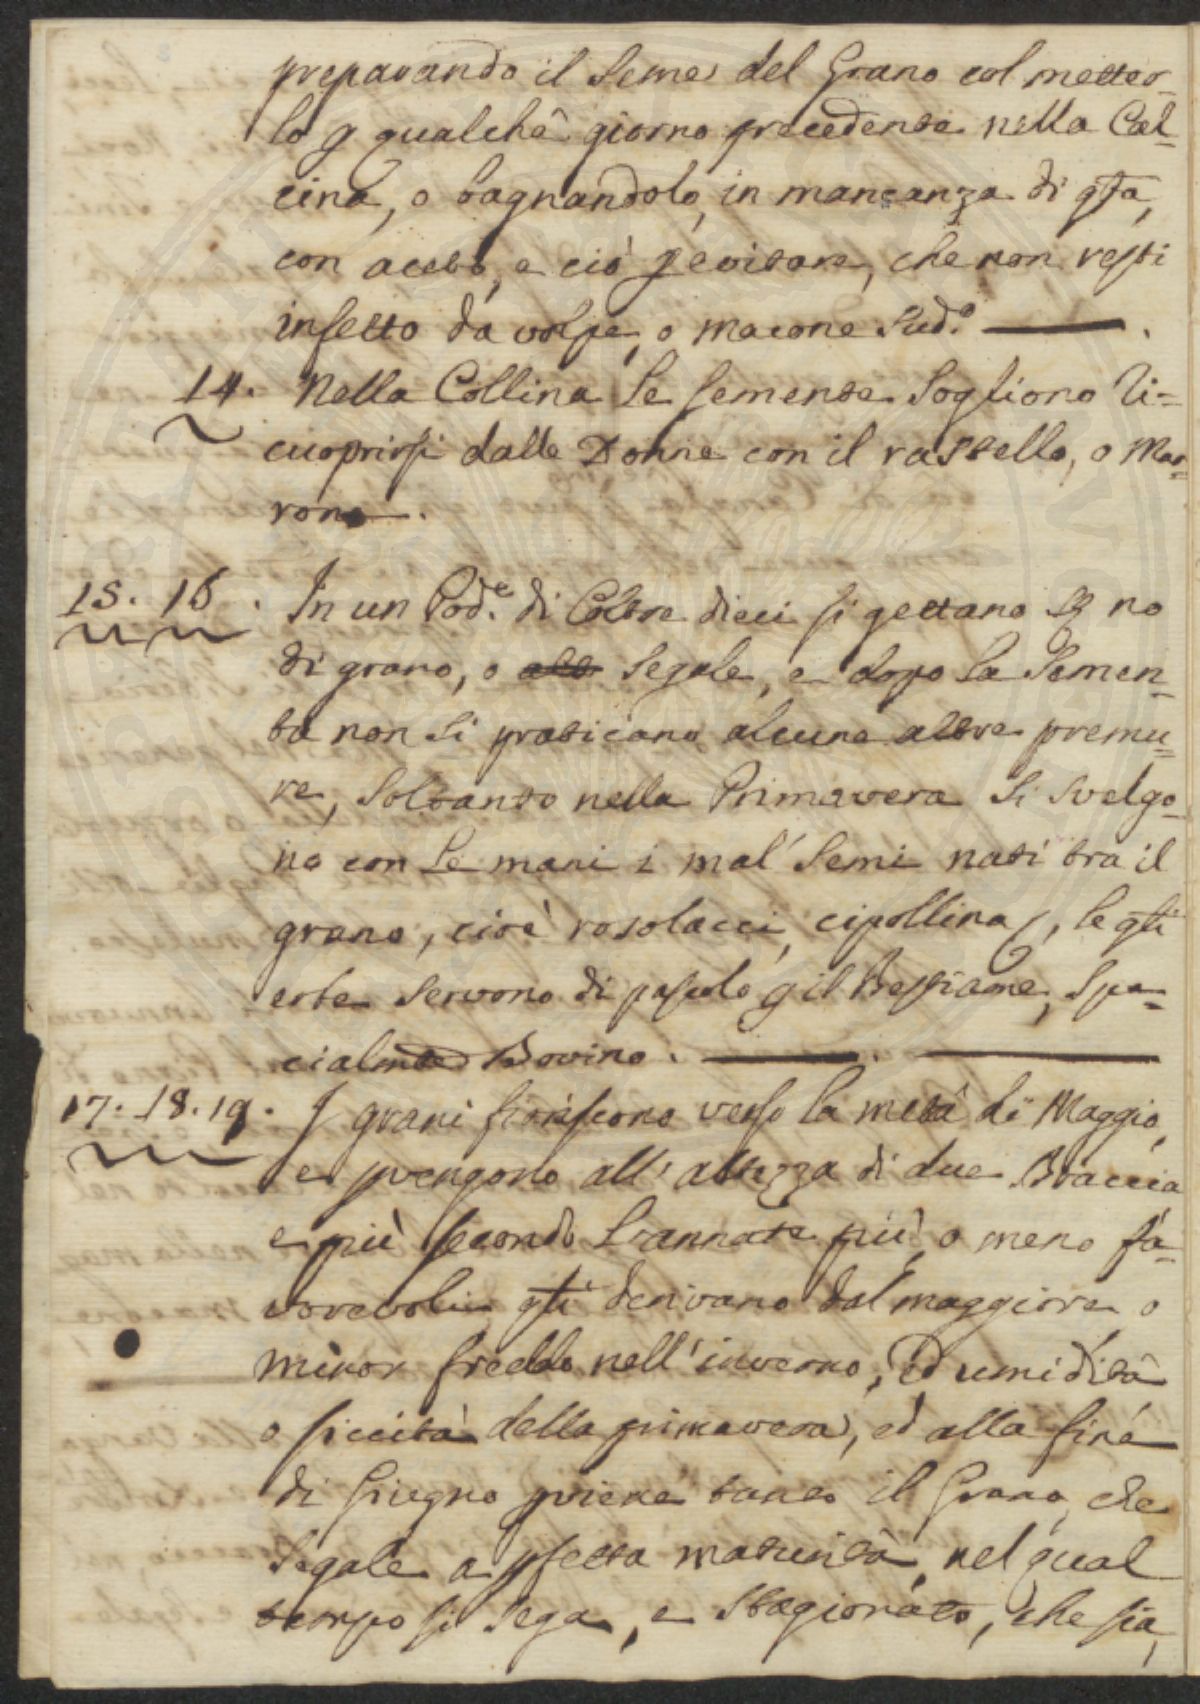 preparando il Seme del Grano col metter-
lo p qualche giorno precedente nella Cal-
cina, o bagnandolo, in mancanza di qta,
con aceto, e ciò p evitare, che non resti
infetto da volpe, o macone Sud.o
14. Nella Collina le semente Sogliono Ri=
cuoprirsi dalle Donne con il rastello, o Mar=
rone.
15. 16. In un Pod.e di Coltre dieci si gettano no
di grano, o Segale, e dopo la Semen-
ta non Si praticano alcune altre premu=
re, Soltanto nella Primavera Si Svelgo-
no con Le mani i mal' Semi nati tra il
grano, cioè rosolacci, cipollina, le qli
erbe Servono di pascolo p il Bestiame, Spe-
cialmte Bovino.
17. 18. 19. I grani fioriscono verso la metà di Maggio,
e pvengono all'altezza di due Braccia
e più secondo L'annate più, o meno fa-
vorevoli, qli derivano dal maggiore, o
minor freddo nell'inverno, ed umidità
o siccità della primavera, ed alla fine
di Giugno pviene tanto il Grano, che
Segale a pfetta maturità, nel qual
tempo si Sega, e Stagionato, che sia,